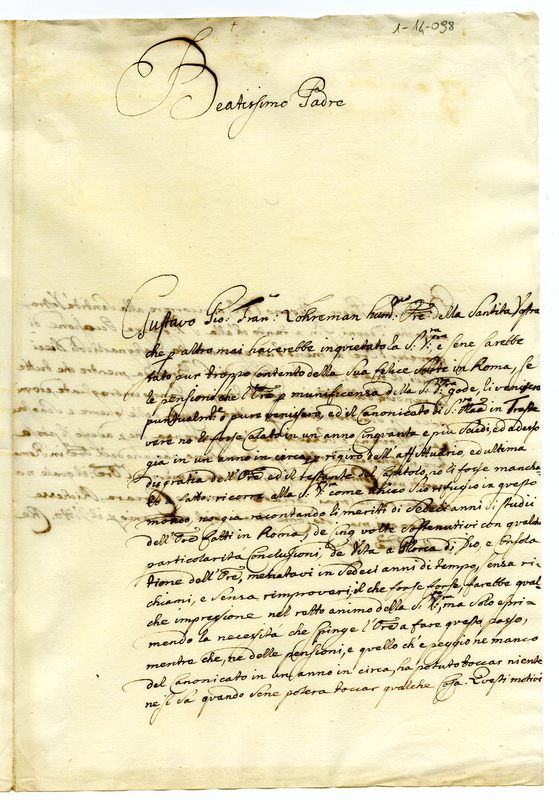 1-14-098
Beatissimo Padre
Gustavo Gio: Fran: Lohreman hum.mo Ore della Santità Vostra
che p altro mai haverebbe inquietato la S. V.ra e sene sarebbe
stato pur troppo contento della sua felice sorte in Roma, se
le pensioni che l'Ore p munificenza della S. V.ra gode, li venissero
puntualm.te ò pure venissero, ed il Canonicato di S. Ma in Traste
vere no li fosse calato in un anno cinquanta e più scudi, ed adesso
già in un anno in circa, p rigiro dell'affittuario, ed ultima
disgratia dell'Ore, ed il restante del Capitolo, no li fosse manca
to fatto; ricorre alla S. V. come unico suo rifugio in questo
mondo, non già racontando li meritti di sedeci anni di studii
dell'Ore fatti in Roma, de cinq volte sostenutivi con qualche
particolarità Conclusioni, de Vita a gloria di Dio, e
tione dell'Ore, menatavi in sedeci anni di tempo, senza ri-
chiami, e senza rimproveri, il che forse forse, farebbe qual
che impressione nel retto animo della S. V.ra, ma solo espri-
mendo la necessità che spinge l'Ore a fare questo passo,
mentre che, ne delle pensioni, e quello ch'è peggio ne manco
del Canonicato in un anno in circa, ha potuto toccar niente
ne si sa quando sene poterà toccar qualche cosa. Questi motivi